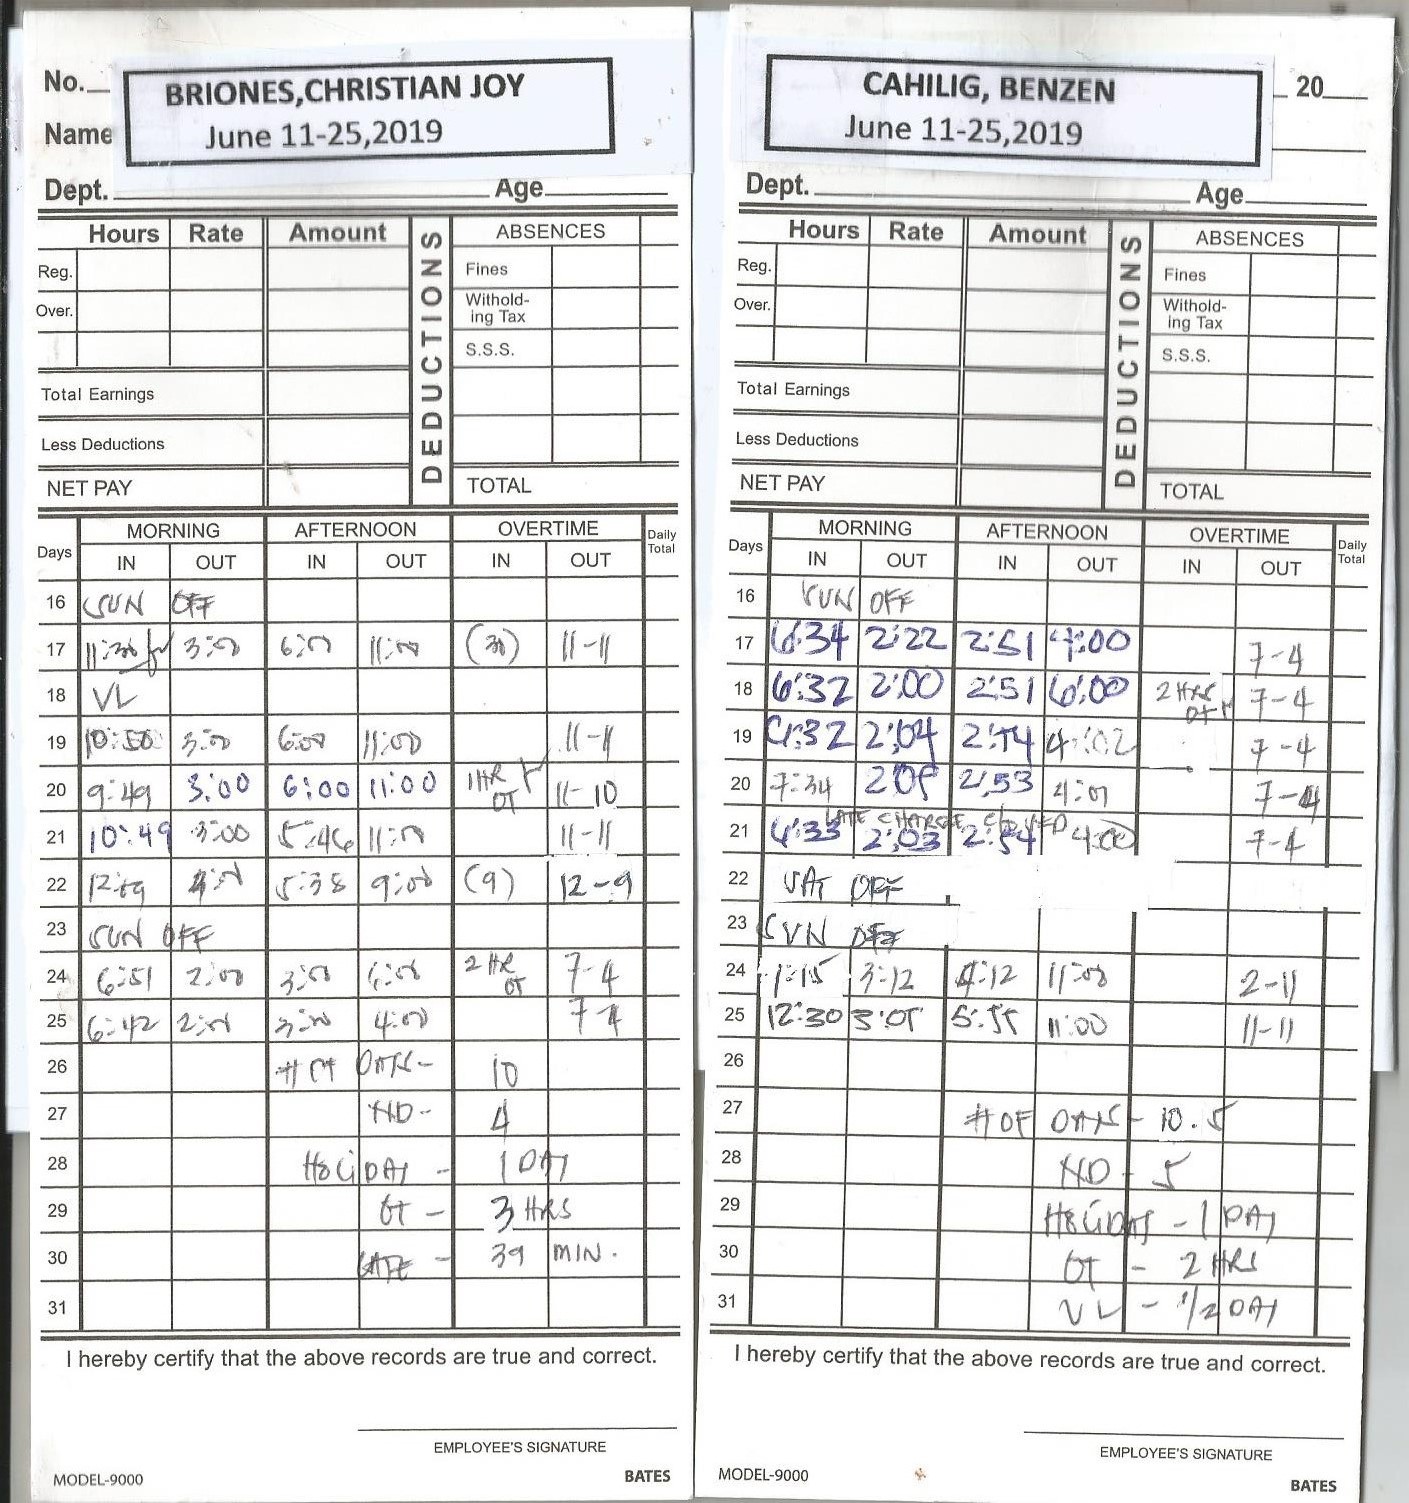 No.
BRIONES,CHRISTIAN JOY
Name
June 11-25,2019
Dept. Age
Hours Rate Amount DEDUCTIONS ABSENCES
Reg. Fines
Over. Withold-
ing Tax
S.S.S.
Total Earnings
Less Deductions
NET PAY TOTAL
Days MORNING AFTERNOON OVERTIME Daily Total
IN OUT IN OUT IN OUT
16 SUN OFF
17 11:30 3:00 6:00 11:00 (30) 11-11
18 VL
19 10:50 3:00 6:00 11:00 11-11
20 9:49 3:00 6:00 11:00 1 HR OT 11-10
21 10:49 3:00 5:46 11:00 11-11
22 12:09 4:00 5:38 9:00 (9) 12-9
23 SUN OFF
24 6:51 2:00 3:00 6:00 2 HR OT 7-4
25 6:42 2:00 3:00 4:00 7-4
26 # OF DAYS - 10
27 ND - 4
28 HOLIDAY - 1 DAY
29 OT - 3 HRS
30 LATE - 39 MIN.
31
I hereby certify that the above records are true and correct.
EMPLOYEE'S SIGNATURE
MODEL-9000 BATES
CAHILIG, BENZEN
20
June 11-25,2019
Dept. Age
Hours Rate Amount DEDUCTIONS ABSENCES
Reg. Fines
Over. Withold-
ing Tax
S.S.S.
Total Earnings
Less Deductions
NET PAY TOTAL
Days MORNING AFTERNOON OVERTIME Daily Total
IN OUT IN OUT IN OUT
16 SUN OFF
17 6:34 2:22 2:51 4:00 7-4
18 6:32 2:00 2:51 6:00 2 HRS OT 7-4
19 2:04 4:02 7-4
20 7:34 2:53 4:01 7-4
LATE CHARGE
21 2:03 2:54 4:00 7-4
22 SAT OFF
23 SUN OFF
24 1:15 3:12 4:12 11:00 2-11
25 12:30 5:55 11:00 11-11
26
27 # OF DAYS - 10.5
28 ND - 5
29 HOLIDAY - 1 DAY
30 OT - 2 HRS
31 VL - 1/2 DAY
I hereby certify that the above records are true and correct.
EMPLOYEE'S SIGNATURE
MODEL-9000 BATES